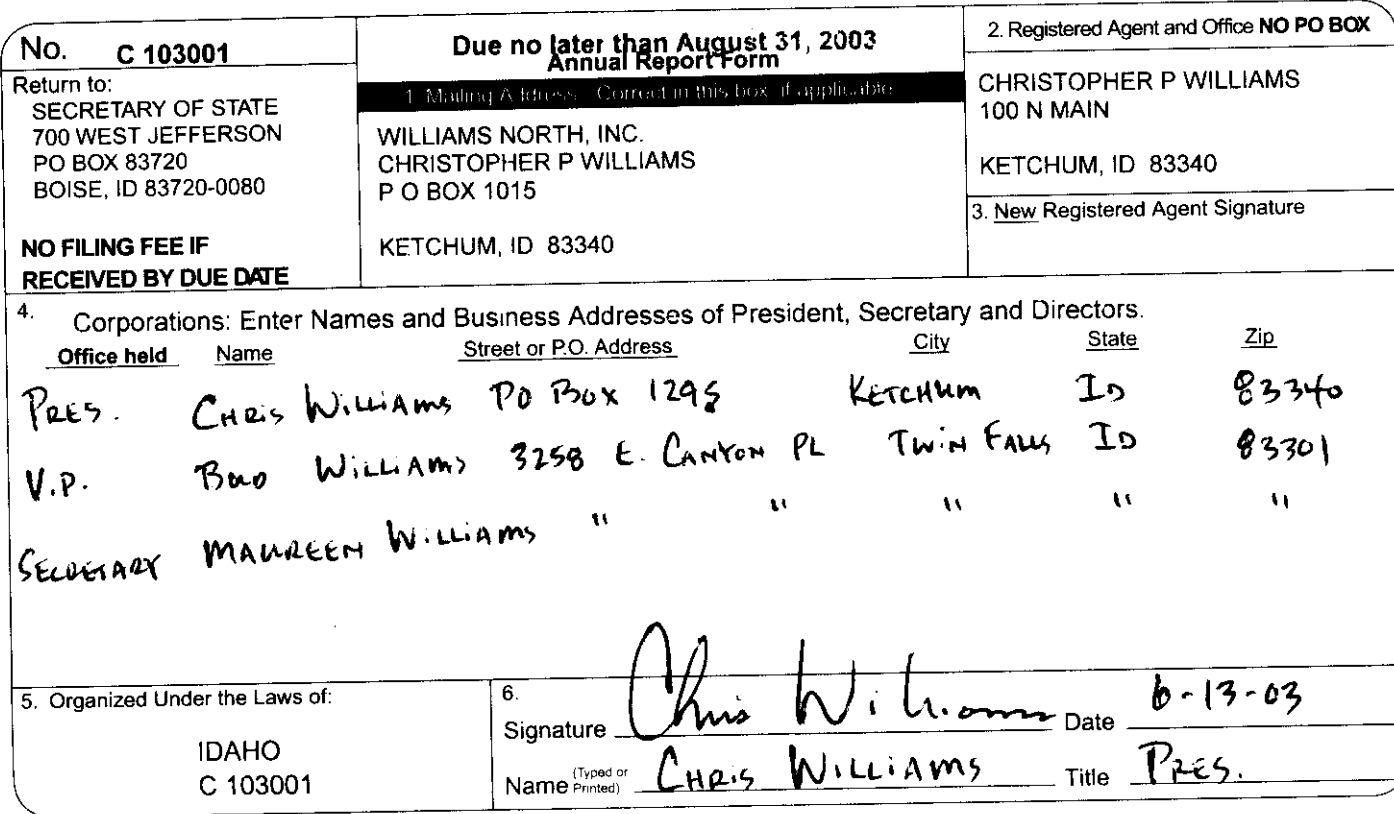 No. C 103001
Return to:
SECRETARY OF STATE
700 WEST JEFFERSON
PO BOX 83720
BOISE, ID 83720-0080
NO FILING FEE IF
RECEIVED BY DUE DATE
Due no later than August 31, 2003
Annual Report Form
1. Mailing Address: Correct in this box if applicable
WILLIAMS NORTH, INC.
CHRISTOPHER P WILLIAMS
P O BOX 1015
KETCHUM, ID 83340
2. Registered Agent and Office NO PO BOX
CHRISTOPHER P WILLIAMS
100 N MAIN
KETCHUM, ID 83340
3. New Registered Agent Signature
4. Corporations: Enter Names and Business Addresses of President, Secretary and Directors.
Office held Name Street or P.O. Address City State Zip
PRES. CHRIS WILLIAMS PO BOX 1295 KETCHUM ID 83340
V.P. WILLIAMS 3258 E. CANYON PL TWIN FALLS ID 83301
SECRETARY MAUREEN WILLIAMS " " " " "
5. Organized Under the Laws of:
IDAHO
C 103001
6.
Signature Chris Williams Date 6-13-03
Name (Typed or Printed) CHRIS WILLIAMS Title PRES.